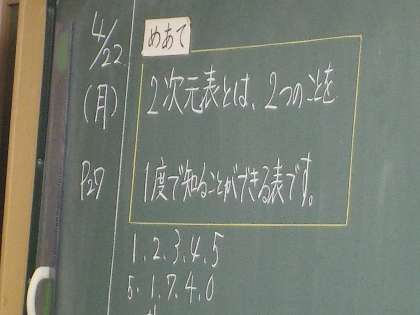 4/22
(月)
P27
めあて
2次元表とは、2つのことを
1度で知ることができる表です。
1.2.3.4.5
5.1.7.4.0